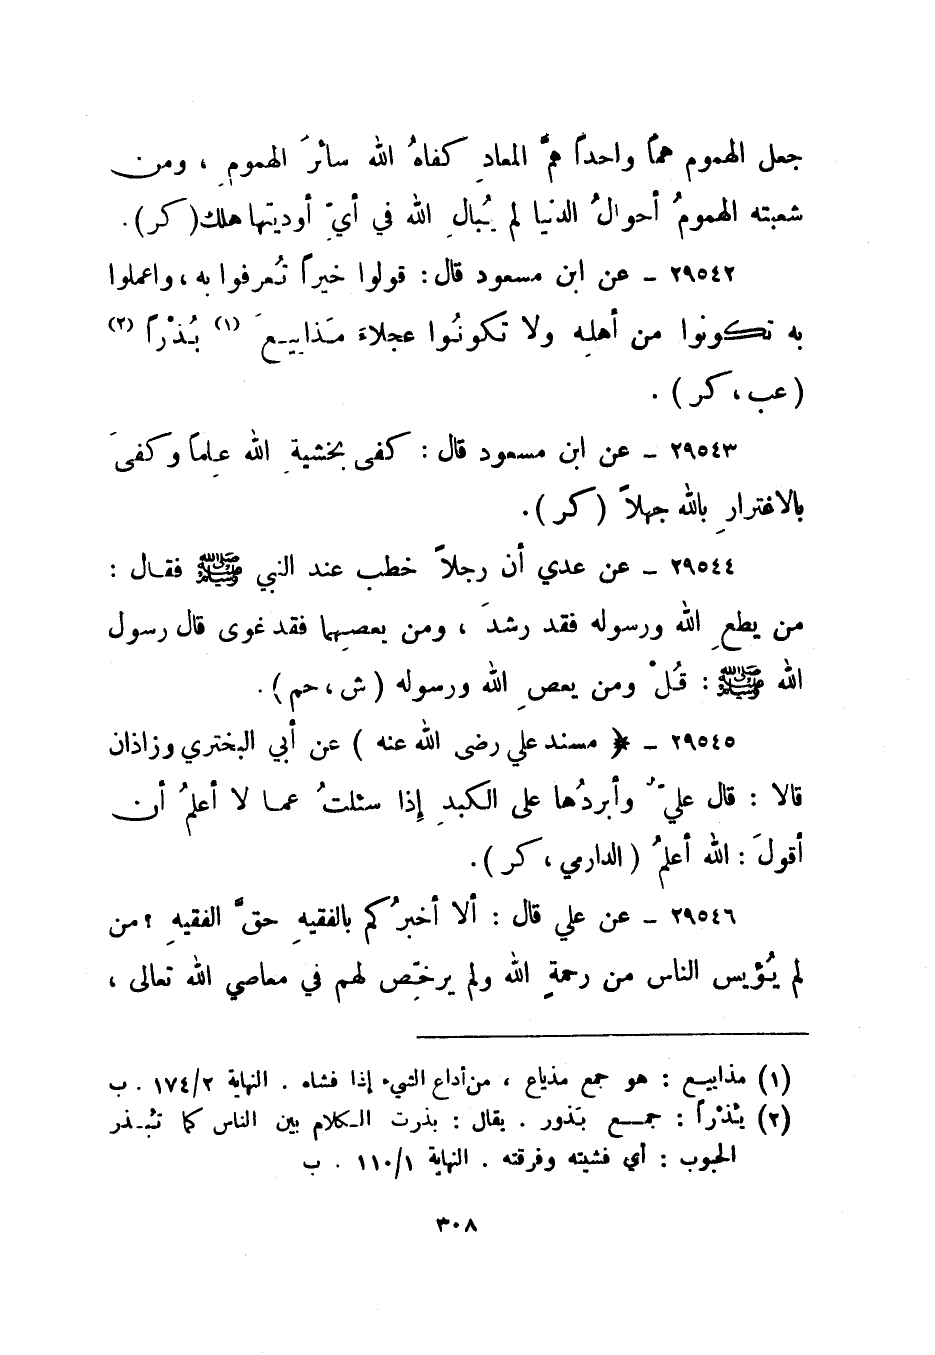 جعل الهموم همّاً واحداً همَّ المعادِ كفاهُ الله سائرَ الهمومِ ، ومن
شعبته الهمومُ أحوالُ الدنيا لم يُبالِ الله في أيّ أوديتها هلك (كر).
٢٩٥٤٢ ـ عن ابن مسعود قال: قولوا خيراً تُعرفوا به ، واعملوا
به تكونوا من أهله ولا تكونُوا عجلاءَ مَذاييعَ (١) بُذْراً (٢)
(عب ، كر) .
٢٩٥٤٣ ـ عن ابن مسعود قال : كفى بخشيةِ الله علماً وكفىَ
بالاغترارِ بالله جهلاً (كر).
٢٩٥٤٤ ـ عن عدي أن رجلاً خطب عند النبي ﷺ فقال :
من يطعِ الله ورسوله فقد رشدَ ، ومن يعصهما فقد غوى قال رسول
الله ﷺ : قُلْ ومن يعصِ الله ورسوله (ش ، حم).
٢٩٥٤٥ ـ ﴿ مسند علي رضى الله عنه ) عن أبي البختري وزاذان
قالا : قال عليّ ُ وأبردُها على الكبدِ إذا سئلتُ عما لا أعلمُ أن
أقولَ : الله أعلمُ (الدارمي ، كر).
٢٩٥٤٦ ـ عن علي قال : ألا أخبرُكم بالفقيهِ حقَّ الفقيهِ ؟ من
لم يُؤْيس الناس من رحمةِ الله ولم يرخّص لهم في معاصي الله تعالى ،
(١) مذاييع : هو جمع مذياع ، من أذاع الشيء إذا فشاه . النهاية ١٧٤/٢ . ب
(٢) بُذْراً : جمع بَذور . يقال : بذرت الكلام بين الناس كما تُبذر
الحبوب : أي فشيته وفرقته . النهاية ١١٠/١ . ب
٣٠٨